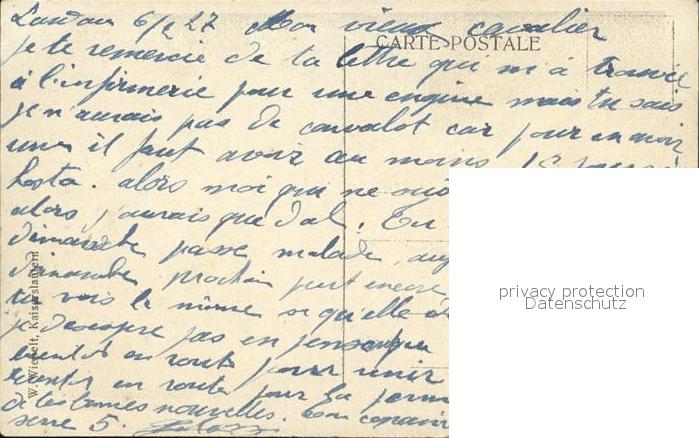 Landau 6/2 27 Mon vieux cavalier
CARTE POSTALE
je te remercie de ta lettre qui m'a trouvé
à l'infirmerie pour une engine mais tu sais
je n'aurais pas de convalot car pour en avoir
une il faut avoir au moins 15 jours
hosto. alors moi qui ne
alors j'aurais que dal. Tu
dimanche passe malade,
dimanche prochain peut encore
tu vois le même si qu'elle
je desespre pas en pensant que
bientot en route pour unir
bientot en route pour la perm
de tes bonnes nouvelles. ton copain
serre 5.
W. Wiegelt, Kaiserslautern
privacy protection
Datenschutz